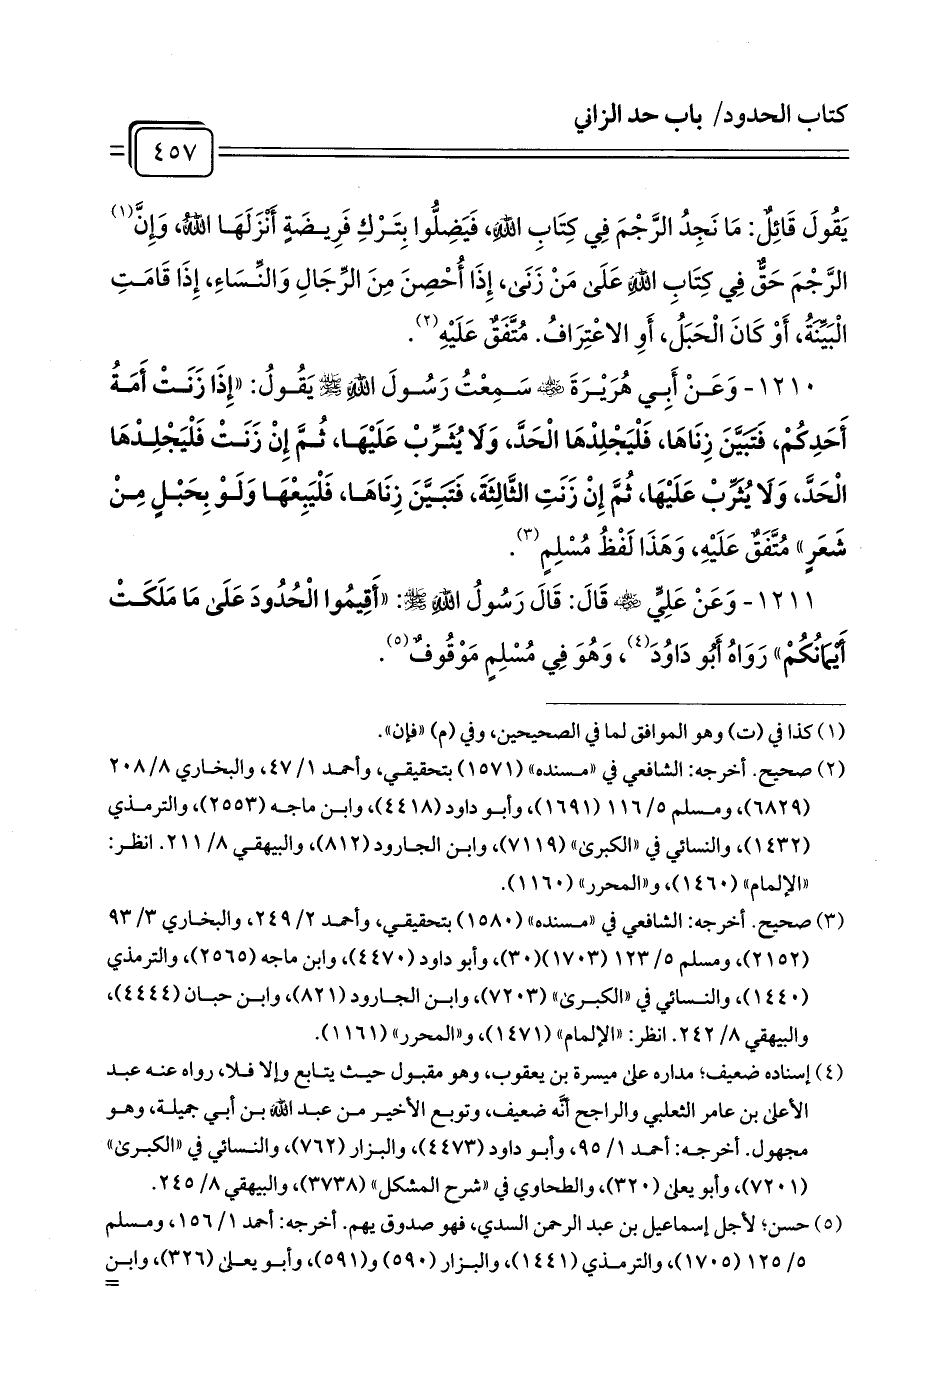 كتاب الحدود/ باب حد الزاني
٤٥٧
يَقُولَ قَائِلٌ: مَا نَجِدُ الرَّجْمَ فِي كِتَابِ اللهِ، فَيَضِلُّوا بِتَرْكِ فَرِيضَةٍ أَنْزَلَهَا اللهُ، وَإِنَّ(١)
الرَّجْمَ حَقٌّ فِي كِتَابِ اللهِ عَلَى مَنْ زَنَى، إِذَا أُحْصِنَ مِنَ الرِّجَالِ وَالنِّسَاءِ، إِذَا قَامَتِ
الْبَيِّنَةُ، أَوْ كَانَ الْحَبَلُ، أَوِ الاعْتِرَافُ. مُتَّفَقٌ عَلَيْهِ(٢).
١٢١٠- وَعَنْ أَبِي هُرَيْرَةَ ﵁ سَمِعْتُ رَسُولَ اللهِ ﷺ يَقُولُ: «إِذَا زَنَتْ أَمَةُ
أَحَدِكُمْ، فَتَبَيَّنَ زِنَاهَا، فَلْيَجْلِدْهَا الْحَدَّ، وَلَا يُثَرِّبْ عَلَيْهَا، ثُمَّ إِنْ زَنَتْ فَلْيَجْلِدْهَا
الْحَدَّ، وَلَا يُثَرِّبْ عَلَيْهَا، ثُمَّ إِنْ زَنَتِ الثَّالِثَةَ، فَتَبَيَّنَ زِنَاهَا، فَلْيَبِعْهَا وَلَوْ بِحَبْلٍ مِنْ
شَعَرٍ» مُتَّفَقٌ عَلَيْهِ، وَهَذَا لَفْظُ مُسْلِمٍ(٣).
١٢١١- وَعَنْ عَلِيٍّ ﵁ قَالَ: قَالَ رَسُولُ اللهِ ﷺ: «أَقِيمُوا الْحُدُودَ عَلَى مَا مَلَكَتْ
أَيْمَانُكُمْ» رَوَاهُ أَبُو دَاوُدَ(٤)، وَهُوَ فِي مُسْلِمٍ مَوْقُوفٌ(٥).
(١) كذا في (ت) وهو الموافق لما في الصحيحين، وفي (م) «فإن».
(٢) صحيح. أخرجه: الشافعي في «مسنده» (١٥٧١) بتحقيقي، وأحمد ١/ ٤٧، والبخاري ٨/ ٢٠٨
(٦٨٢٩)، ومسلم ٥/ ١١٦ (١٦٩١)، وأبو داود (٤٤١٨)، وابن ماجه (٢٥٥٣)، والترمذي
(١٤٣٢)، والنسائي في «الكبرى» (٧١١٩)، وابن الجارود (٨١٢)، والبيهقي ٨/ ٢١١. انظر:
«الإلمام» (١٤٦٠)، و«المحرر» (١١٦٠).
(٣) صحيح. أخرجه: الشافعي في «مسنده» (١٥٨٠) بتحقيقي، وأحمد ٢/ ٢٤٩، والبخاري ٣/ ٩٣
(٢١٥٢)، ومسلم ٥/ ١٢٣ (١٧٠٣)(٣٠)، وأبو داود (٤٤٧٠)، وابن ماجه (٢٥٦٥)، والترمذي
(١٤٤٠)، والنسائي في «الكبرى» (٧٢٠٣)، وابن الجارود (٨٢١)، وابن حبان (٤٤٤٤)،
والبيهقي ٨/ ٢٤٢. انظر: «الإلمام» (١٤٧١)، و«المحرر» (١١٦١).
(٤) إسناده ضعيف؛ مداره على ميسرة بن يعقوب، وهو مقبول حيث يتابع وإلا فلا، رواه عنه عبد
الأعلى بن عامر الثعلبي والراجح أنَّه ضعيف، وتوبع الأخير من عبد الله بن أبي جميلة، وهو
مجهول. أخرجه: أحمد ١/ ٩٥، وأبو داود (٤٤٧٣)، والبزار (٧٦٢)، والنسائي في «الكبرى»
(٧٢٠١)، وأبو يعلى (٣٢٠)، والطحاوي في «شرح المشكل» (٣٧٣٨)، والبيهقي ٨/ ٢٤٥.
(٥) حسن؛ لأجل إسماعيل بن عبد الرحمن السدي، فهو صدوق يهم. أخرجه: أحمد ١/ ١٥٦، ومسلم
٥/ ١٢٥ (١٧٠٥)، والترمذي (١٤٤١)، والبزار (٥٩٠) و(٥٩١)، وأبو يعلى (٣٢٦)، وابن
=